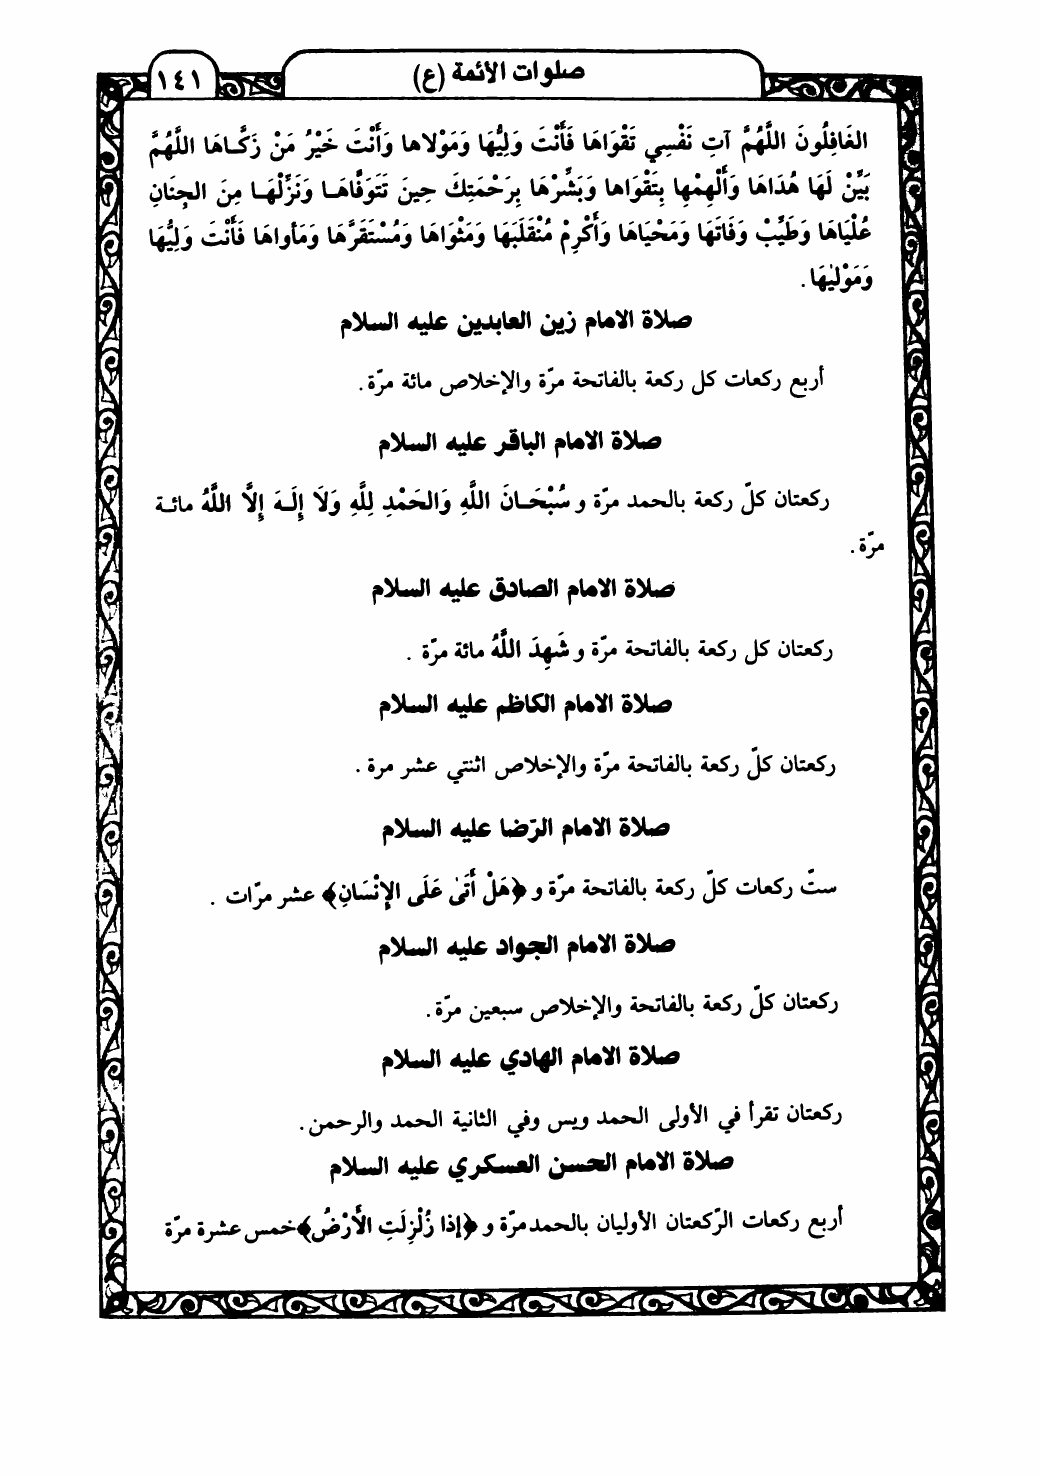 صلوات الأئمة (ع)
١٤١
الغَافِلُونَ اللَّهُمَّ آتِ نَفْسِي تَقْوَاهَا فَأَنْتَ وَلِيُّهَا وَمَوْلاها وَأَنْتَ خَيْرُ مَنْ زَكَّـاهَا اللَّهُمَّ
بَيِّنْ لَهَا هُدَاهَا وَأَلْهِمْهِا بِتَقْوَاها وَبَشِّرْهَا بِرَحْمَتِكَ حِينَ تَتَوَفَّاهَـا وَنَزِّلْهَـا مِنَ الجِنَانِ
عُلْيَاهَا وَطَيِّبْ وَفَاتَهَا وَمَحْيَاهَا وَأَكْرِمْ مُنْقَلَبَهَا وَمَثْوَاهَا وَمُسْتَقَرَّهَا وَمَأواهَا فَأَنْتَ وَلِيُّهَا
وَمَوْلٰيهَا.
صلاة الامام زين العابدين عليه السلام
أربع ركعات كل ركعة بالفاتحة مرّة والإخلاص مائة مرّة.
صلاة الامام الباقر عليه السلام
ركعتان كلّ ركعة بالحمد مرّة و سُبْحَـانَ اللَّهِ وَالحَمْدِ لِلَّهِ وَلَا إِلَـهَ إِلَّا اللَّهُ مائـة
مرّة.
صلاة الامام الصادق عليه السلام
ركعتان كل ركعة بالفاتحة مرّة و شَهِدَ اللَّهُ مائة مرّة .
صلاة الامام الكاظم عليه السلام
ركعتان كلّ ركعة بالفاتحة مرّة والإخلاص اثنتي عشر مرة .
صلاة الامام الرّضا عليه السلام
ستّ ركعات كلّ ركعة بالفاتحة مرّة و ﴿هَلْ أَتَىٰ عَلَى الإِنْسَانِ﴾ عشر مرّات .
صلاة الامام الجواد عليه السلام
ركعتان كلّ ركعة بالفاتحة والإخلاص سبعين مرّة.
صلاة الامام الهادي عليه السلام
ركعتان تقرأ في الأولى الحمد ويس وفي الثانية الحمد والرحمن.
صلاة الامام الحسن العسكري عليه السلام
أربع ركعات الرّكعتان الأوليان بالحمد مرّة و ﴿إذا زُلْزِلَتِ الأَرْضُ﴾ خمس عشرة مرّة